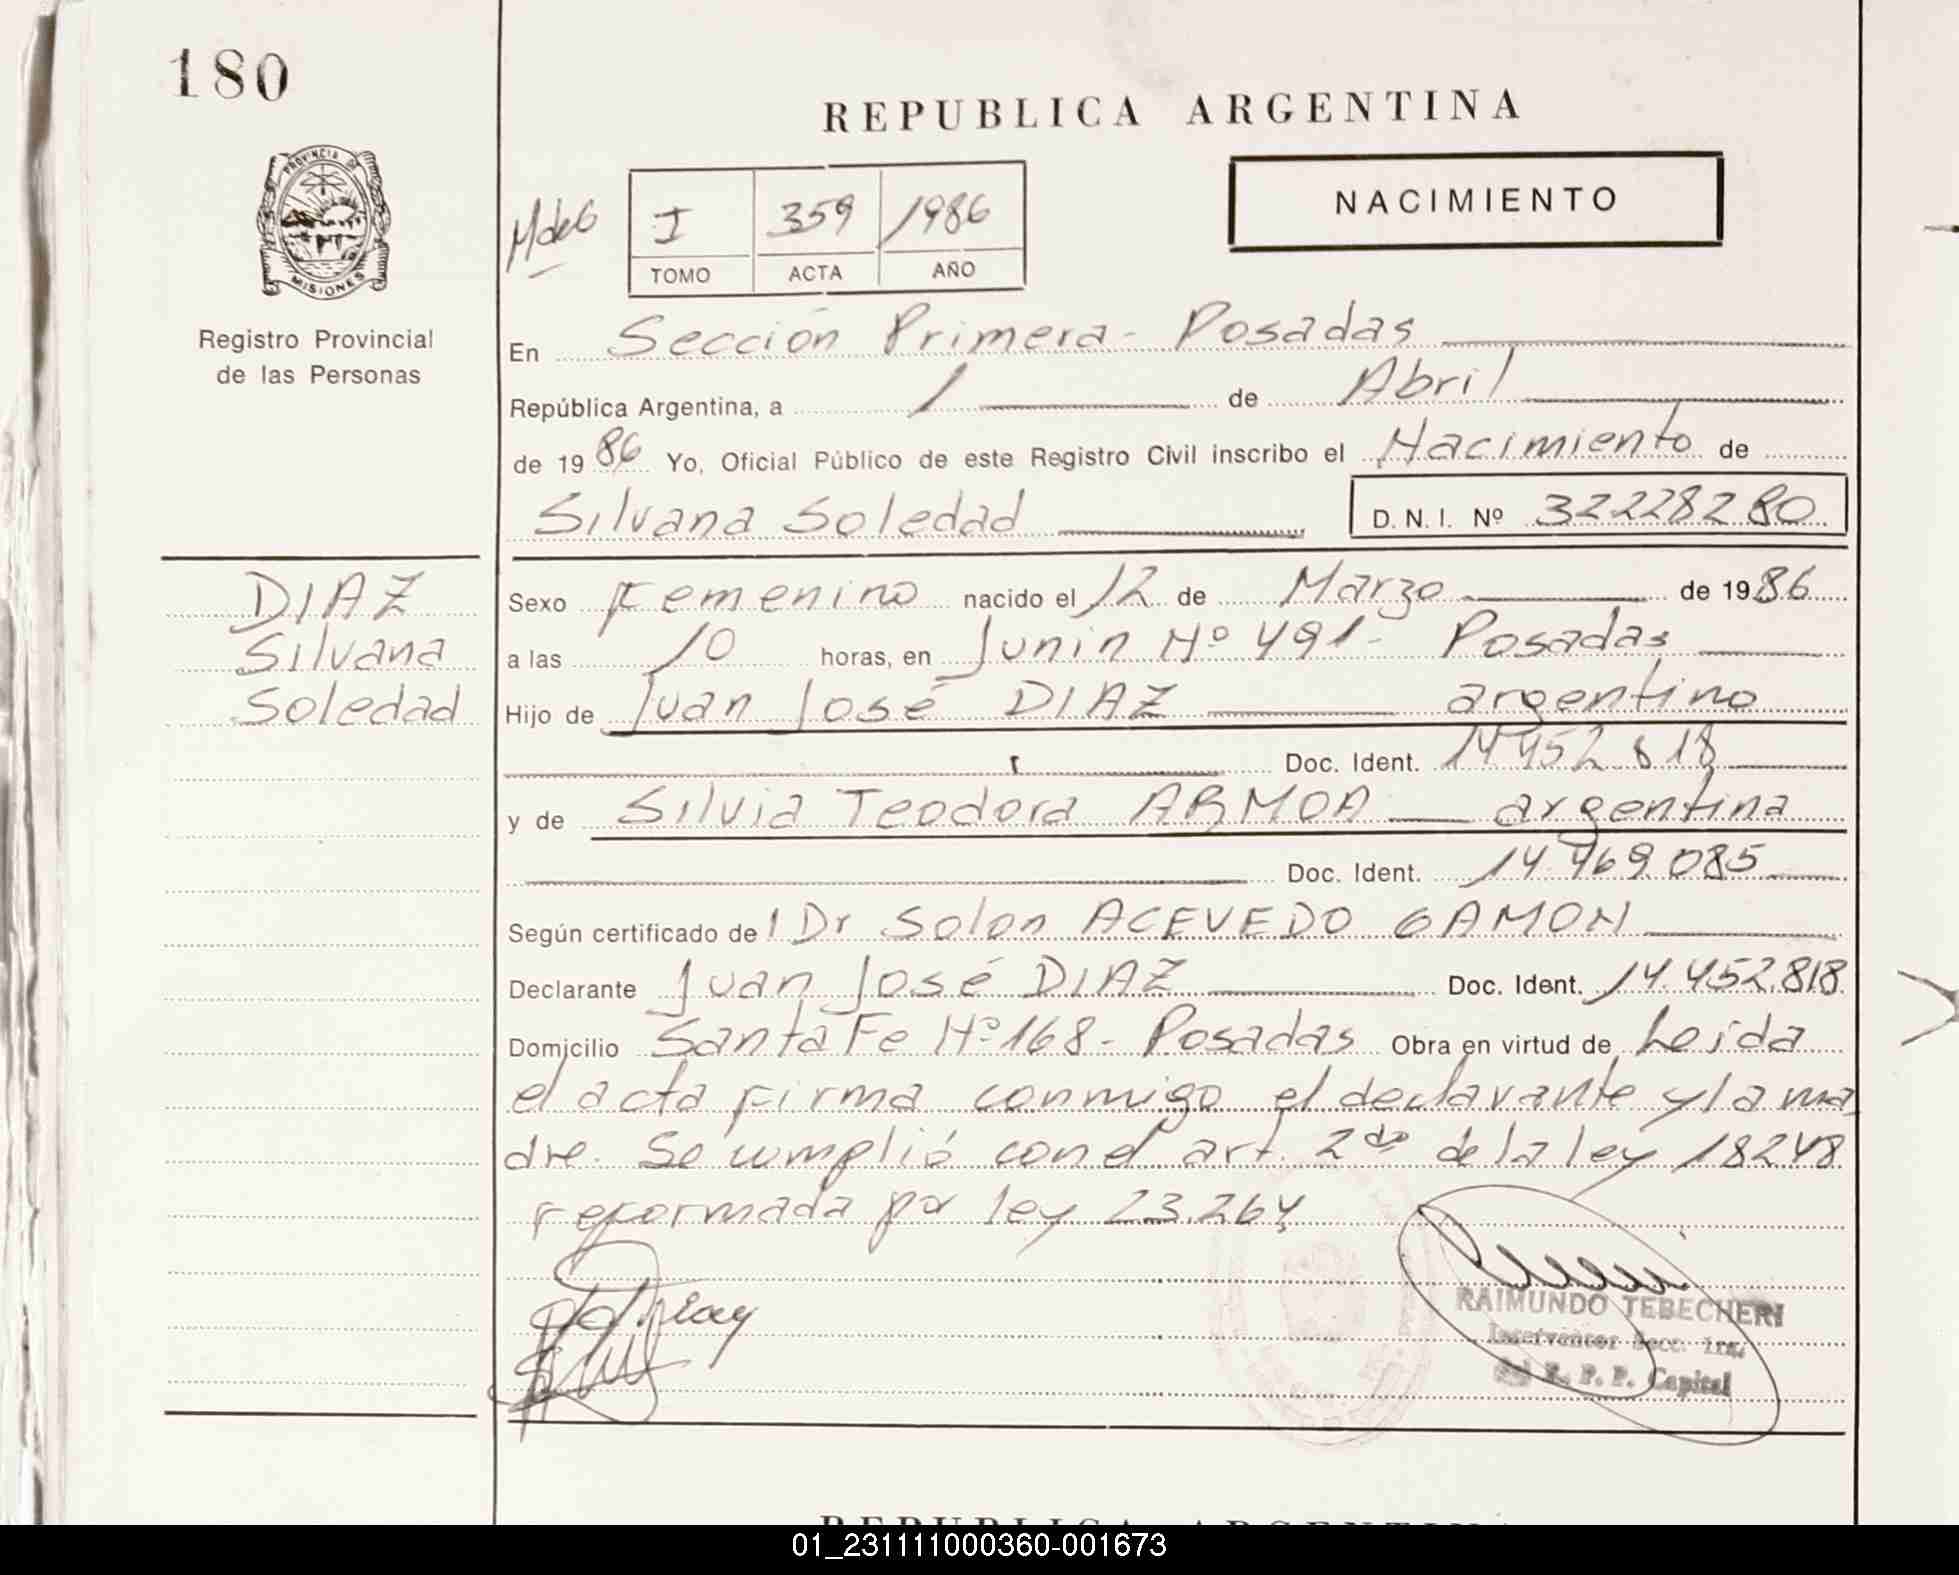 180
REPUBLICA ARGENTINA
NACIMIENTO
PROVINCIA DE
MISIONES
Registro Provincial
de las Personas
I 359 1986
TOMO ACTA AÑO
En Sección Primera - Posadas
República Argentina, a 1 de Abril
de 1986 Yo, Oficial Público de este Registro Civil inscribo el Nacimiento de
Silvana Soledad D. N. I. Nº 32228280
DIAZ
Silvana
Soledad
Sexo Femenino nacido el 12 de Marzo de 1986
a las 10 horas, en Junin Nº 491 - Posadas
Hijo de Juan José DIAZ argentino
Doc. Ident. 14452818
y de Silvia Teodora ARMOA argentina
Doc. Ident. 14.469.085
Según certificado del Dr Solon ACEVEDO GAMON
Declarante Juan José DIAZ Doc. Ident. 14.452.818
Domicilio Santa Fe Nº 168 - Posadas Obra en virtud de Leida
el acta firma conmigo el declarante y la ma
dre. Se cumplió con el art. 2do de la ley 18248
reformada por ley 23.264
RAIMUNDO TEBECHERI
Interventor Secc. 1ra.
del R. P. P. Capital
REPUBLICA ARGENTINA
01_231111000360-001673